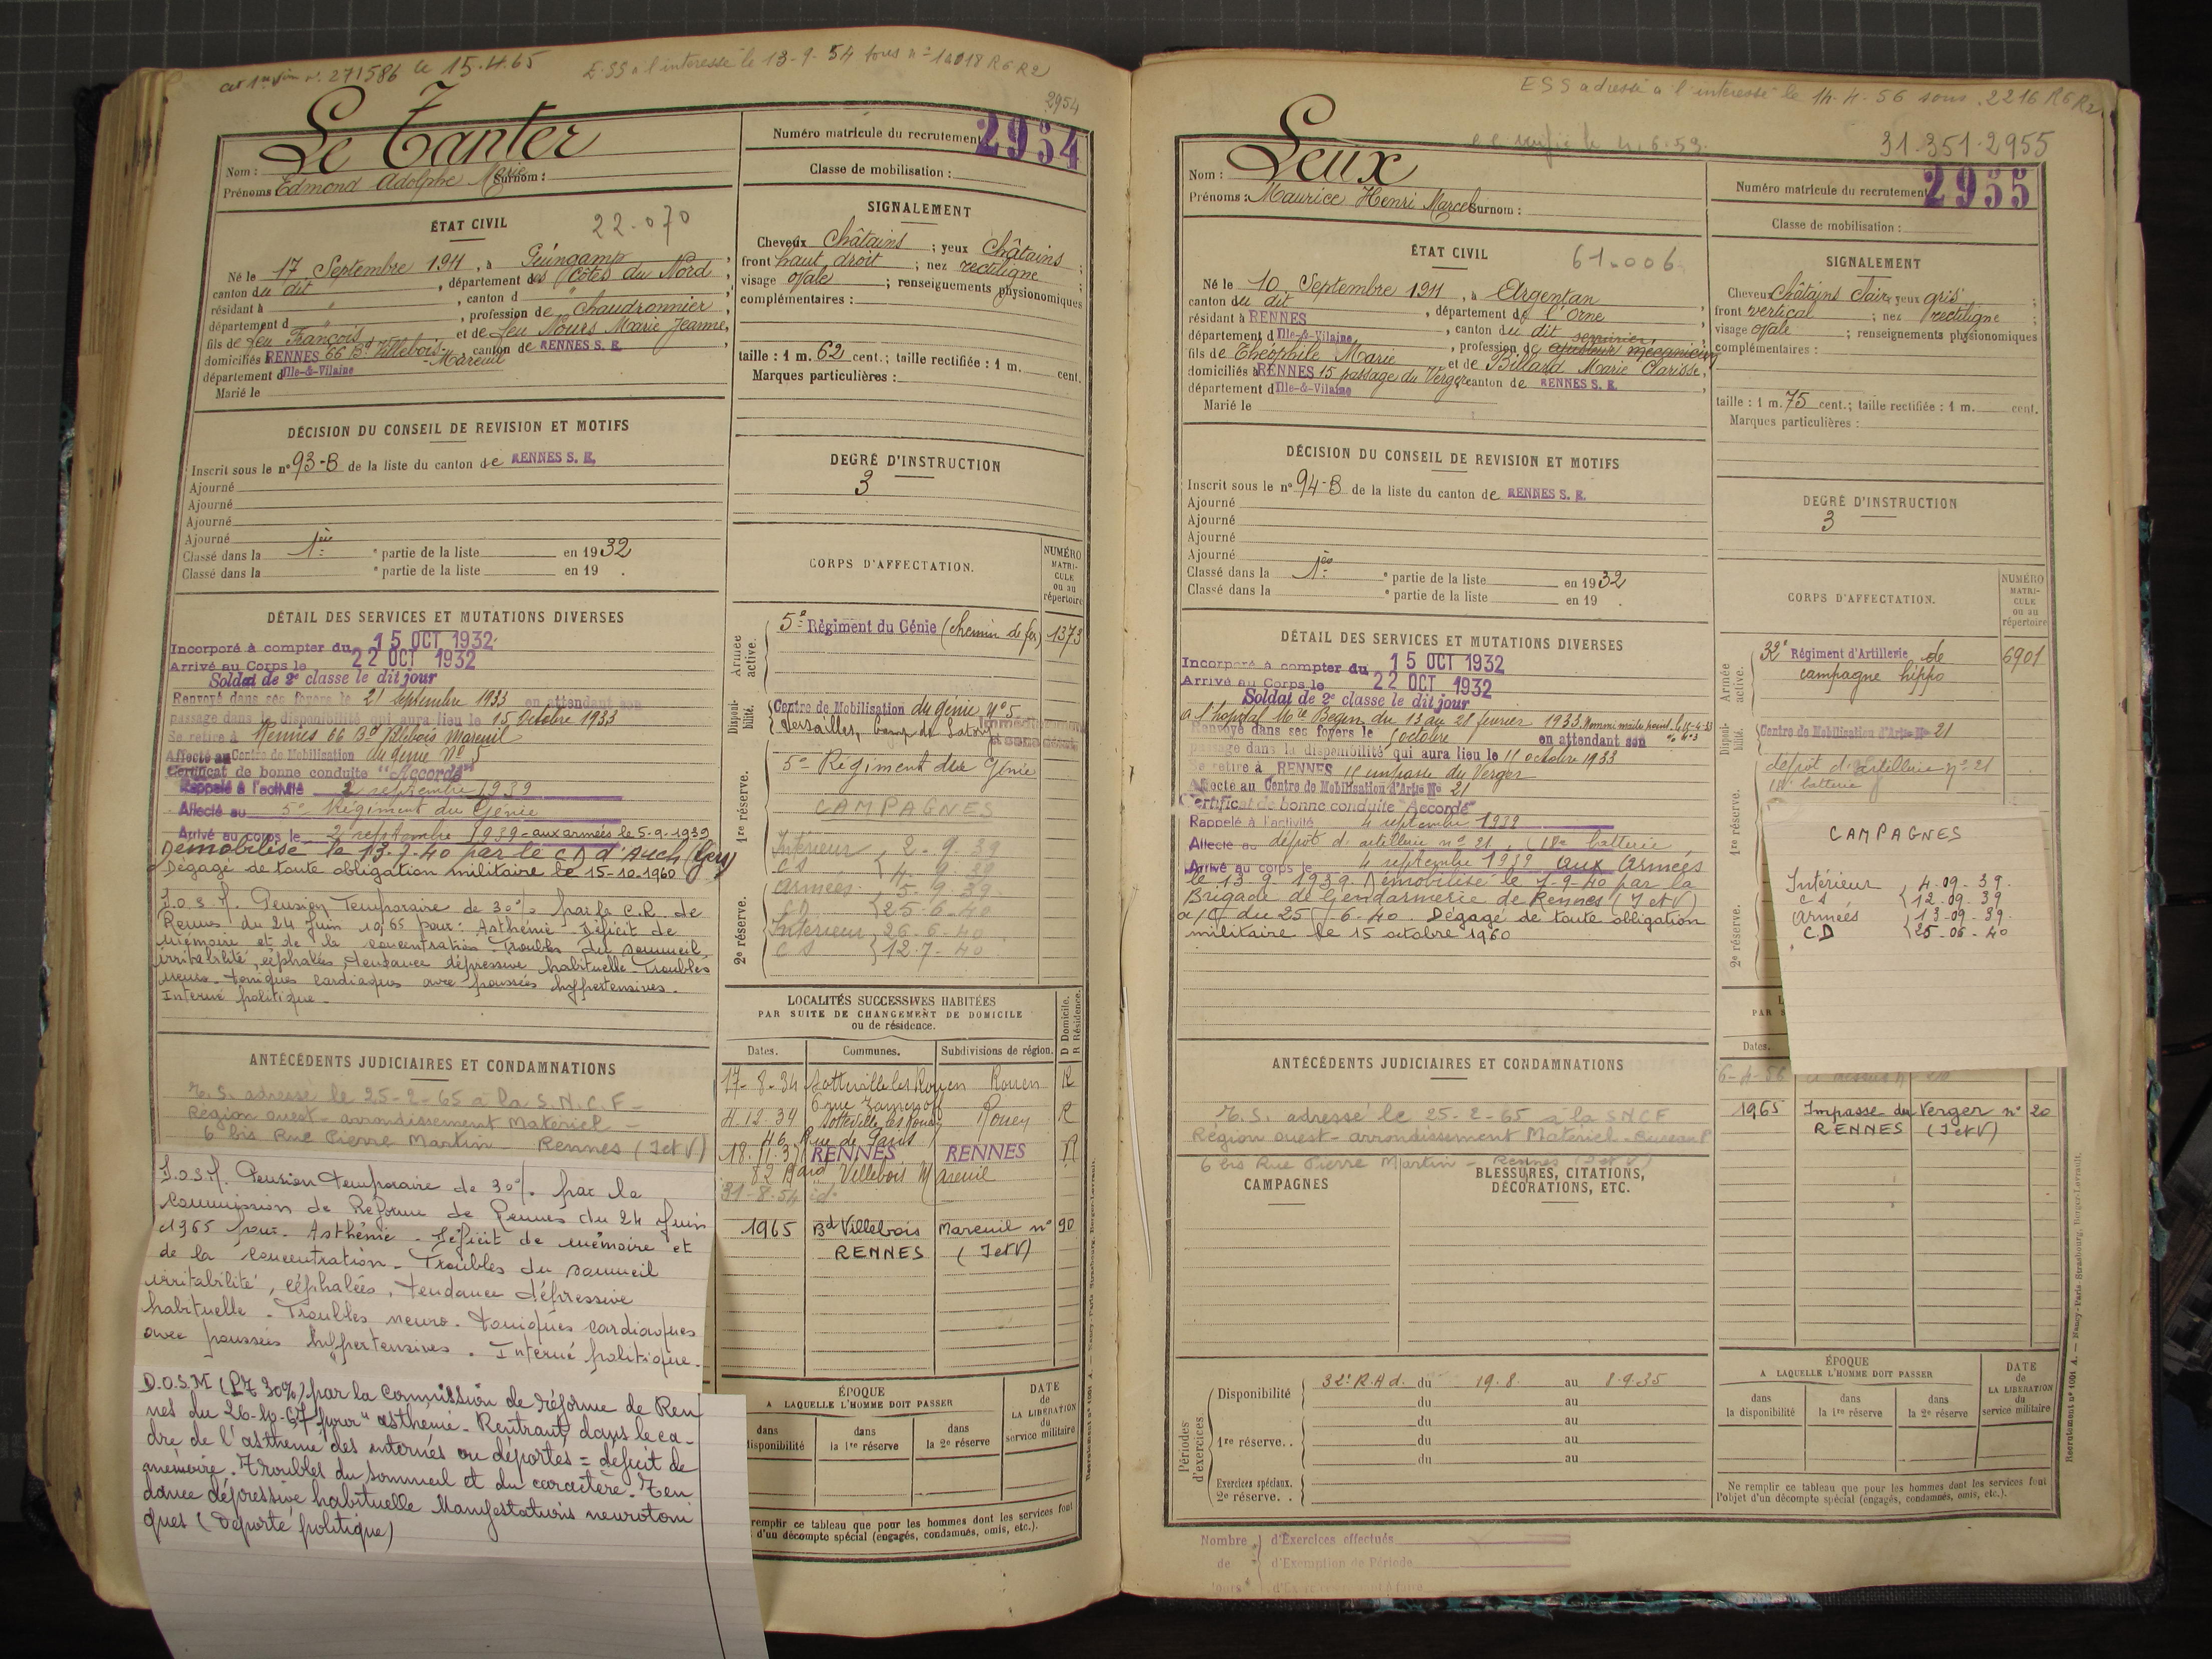 le 15.4.65
E.SS à l'interessé le 13-9-54 sous n° 14018 R6 R2
2954
Nom : Le Tanter
Prénoms Edmond Adolphe Marie Surnom :
Numéro matricule du recrutement 2954
Classe de mobilisation :
ÉTAT CIVIL
22-070
Né le 17 Septembre 1911, à Guingamp,
canton du dit, département des Côtes du Nord,
résidant à ", canton d "
département d ", profession de chaudronnier,
fils de feu François et de feu Nours Marie Jeanne,
domiciliés RENNES 66 Bd Villebois-Mareuil canton de RENNES S. E.
département d'Ille-&-Vilaine
Marié le
SIGNALEMENT
Cheveux Châtains ; yeux Châtains ;
front haut droit ; nez rectiligne ;
visage ovale ; renseignements physionomiques
complémentaires :
taille : 1 m. 62 cent.; taille rectifiée : 1 m. cent.
Marques particulières :
DÉCISION DU CONSEIL DE REVISION ET MOTIFS
Inscrit sous le n° 93-B de la liste du canton de RENNES S. E.
Ajourné
Ajourné
Ajourné
Ajourné
Classé dans la 1ère partie de la liste en 1932
Classé dans la e partie de la liste en 19 .
DEGRÉ D'INSTRUCTION
3
DÉTAIL DES SERVICES ET MUTATIONS DIVERSES
Incorporé à compter du 15 OCT 1932
Arrivé au Corps le 22 OCT 1932
Soldat de 2e classe le dit jour
Renvoyé dans ses foyers le 21 septembre 1933 en attendant son
passage dans la disponibilité qui aura lieu le 15 octobre 1933
Se retire à Rennes 66 Bd Villebois Mareuil
Affecté au Centre de Mobilisation du génie N° 5
Certificat de bonne conduite "Accordé"
Rappelé à l'activité 2 septembre 1939
Affecté au 5e Régiment du Génie
Arrivé au corps le 2 septembre 1939 - aux armées le 5-9-1939
Démobilisé le 13.7.40 par le CD d'Auch (Gers)
Dégagé de toute obligation militaire le 15-10-1960
Pension Temporaire de 30% par la C.R. de
Rennes du 24 Juin 1965 pour : Asthénie. Déficit de
mémoire et de la concentration. Troubles du sommeil,
irritabilité, céphalées, tendance dépressive habituelle. Troubles
neuro-toniques cardiaques avec poussées hypertensives.
Interné politique.
CORPS D'AFFECTATION.
NUMÉRO MATRICULE ou au répertoire
Armée active.
5e Régiment du Génie (chemin de fer) 1373
Disponibilité.
Centre de Mobilisation du génie N° 5
Versailles, Camp de Satory
1re réserve.
5e Régiment du Génie
CAMPAGNES
Intérieur 2-9-39
CS 4-9-39
Armées 5-9-39
CD 25-6-40
2e réserve.
Intérieur 26-6-40
CS 12-7-40
LOCALITÉS SUCCESSIVES HABITÉES
PAR SUITE DE CHANGEMENT DE DOMICILE
ou de résidence.
Dates. Communes. Subdivisions de région. D Domicile. R Résidence.
17-8-34 Sotteville les Rouen Rouen R
6 rue Zamenhof
4.12.34 Sotteville les Rouen Rouen R
46 Rue de Paris
18.11.37 RENNES RENNES R
82 Bard Villebois Mareuil
31-8-54 id.
1965 Bd Villebois Mareuil n° 90
RENNES (I et V)
ANTÉCÉDENTS JUDICIAIRES ET CONDAMNATIONS
E.S. adressé le 25-2-65 à la S.N.C.F -
Région ouest - arrondissement Matériel -
6 bis Rue Pierre Martin - Rennes (I et V)
Pension temporaire de 30% par la
Commission de Réforme de Rennes du 24 Juin
1965 pour : Asthénie. Déficit de mémoire et
de la concentration. Troubles du sommeil
irritabilité, céphalées, tendance dépressive
habituelle. Troubles neuro-toniques cardiaques
avec poussées hypertensives. Interné politique.
D.O.S.M (PT 30%) par la Commission de réforme de Ren
nes du 26-10-67 pour "asthénie. Rentrant dans le ca-
dre de l'asthénie des internés ou déportés = déficit de
mémoire. Troubles du sommeil et du caractère. Ten
dance dépressive habituelle Manifestations neurotoni
ques (Déporté politique)
ÉPOQUE
A LAQUELLE L'HOMME DOIT PASSER
DATE de LA LIBÉRATION du service militaire
dans disponibilité
dans la 1re réserve
dans la 2e réserve
remplir ce tableau que pour les hommes dont les services font
d'un décompte spécial (engagés, condamnés, omis, etc.).
ESS adressé à l'interessé le 14-4-56 sous 2216 R6 R2
31.351.2955
Nom : Leux
Prénoms : Maurice Henri Marcel Surnom :
Numéro matricule du recrutement 2955
Classe de mobilisation :
ÉTAT CIVIL
61-006
Né le 10 Septembre 1911, à Argentan
canton du dit, département de l'Orne
résidant à RENNES, canton du dit
département d'Ille-&-Vilaine, profession de ajusteur mécanicien serrurier
fils de Théophile Marie et de Billard Marie Clarisse,
domiciliés à RENNES 15 passage du Verger canton de RENNES S. E.
département d'Ille-&-Vilaine
Marié le
SIGNALEMENT
Cheveux Châtains clairs yeux gris ;
front vertical ; nez rectiligne ;
visage ovale ; renseignements physionomiques
complémentaires :
taille : 1 m. 75 cent.; taille rectifiée : 1 m. cent.
Marques particulières :
DÉCISION DU CONSEIL DE REVISION ET MOTIFS
Inscrit sous le n° 94-B de la liste du canton de RENNES S. E.
Ajourné
Ajourné
Ajourné
Ajourné
Classé dans la 1re partie de la liste en 1932
Classé dans la e partie de la liste en 19 .
DEGRÉ D'INSTRUCTION
3
DÉTAIL DES SERVICES ET MUTATIONS DIVERSES
Incorporé à compter du 15 OCT 1932
Arrivé au Corps le 22 OCT 1932
Soldat de 2e classe le dit jour
à l'hopital Mre Begin du 13 au 28 fevrier 1933.
Renvoyé dans ses foyers le 1 octobre en attendant son
passage dans la disponibilité qui aura lieu le 11 octobre 1933
Se retire à RENNES 15 impasse du Verger
Affecté au Centre de Mobilisation d'Artie N° 21
Certificat de bonne conduite "Accordé"
Rappelé à l'activité 4 septembre 1939
Affecté au dépôt d'artillerie n° 21, 18e batterie,
Arrivé au corps le 4 septembre 1939 aux Armées
le 13.9.1939. Démobilisé le 7-9-40 par la
Brigade de Gendarmerie de Rennes (I et V)
a/c du 25-6-40. Dégagé de toute obligation
militaire le 15 octobre 1960
CORPS D'AFFECTATION.
NUMÉRO MATRICULE ou au répertoire
Armée active.
32e Régiment d'Artillerie de 6901
campagne hippo
Disponibilité.
Centre de Mobilisation d'Artie N° 21
1re réserve.
dépôt d'artillerie n° 21
18e batterie
2e réserve.
CAMPAGNES
Intérieur 4-09-39
CS 12-09-39
Armées 13-09-39
CD 25-06-40
Dates.
6-4-56
1965 Impasse du Verger n° 20
RENNES (I et V)
ANTÉCÉDENTS JUDICIAIRES ET CONDAMNATIONS
E.S. adressé le 25-2-65 à la SNCF
Région ouest - arrondissement Matériel -
6 bis Rue Pierre Martin - Rennes (I et V)
CAMPAGNES
BLESSURES, CITATIONS,
DÉCORATIONS, ETC.
Périodes d'exercices.
Disponibilité 32e R.A.d. du 19.8. au 8-9-35
du au
1re réserve. . du au
du au
du au
Exercices spéciaux.
2e réserve. .
ÉPOQUE
A LAQUELLE L'HOMME DOIT PASSER
DATE de LA LIBÉRATION du service militaire
dans la disponibilité
dans la 1re réserve
dans la 2e réserve
Ne remplir ce tableau que pour les hommes dont les services font
l'objet d'un décompte spécial (engagés, condamnés, omis, etc.).
Nombre de jours
d'Exercices effectués
d'Exemption de Période
Recrutement n° 1091 A. — Nancy-Paris-Strasbourg, Berger-Levrault.